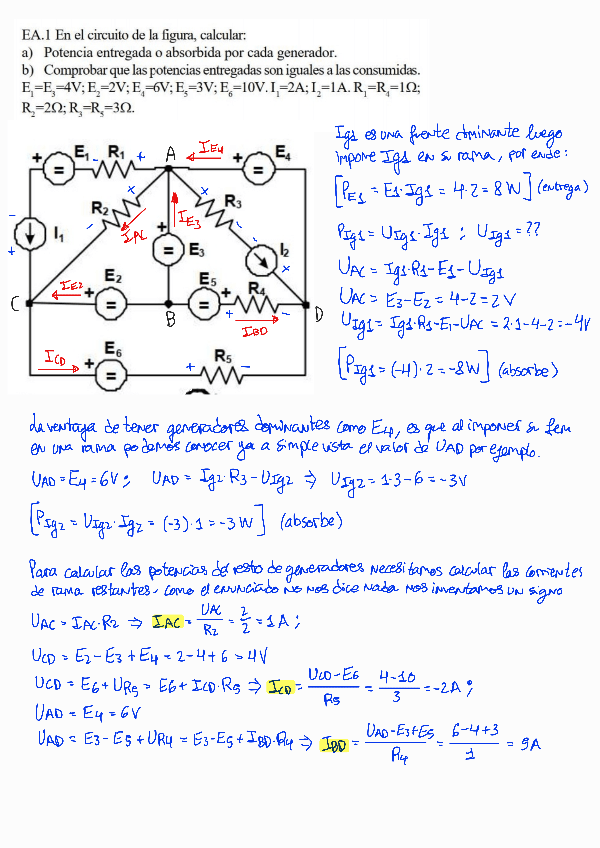 EA.1 En el circuito de la figura, calcular:
a) Potencia entregada o absorbida por cada generador.
b) Comprobar que las potencias entregadas son iguales a las consumidas.
E₁=E₃=4V; E₂=2V; E₄=6V; E₅=3V; E₆=10V. I₁=2A; I₂=1A. R₁=R₄=1Ω;
R₂=2Ω; R₃=R₅=3Ω.
+ E₁ - R₁ + A I_E4 + E₄
R₂ + - I_AC I_E3 + R₃ -
- I₁ + + E₃ I₂ +
C I_E2 + E₂ B + E₅ + R₄ - D
I_BD
I_CD + E₆ + R₅ -
Ig1 es una fuente dominante luego
impone Ig1 en su rama, por ende:
[P_E1 = E1·Ig1 = 4·2 = 8W] (entrega)
P_Ig1 = U_Ig1·Ig1 ; U_Ig1 = ??
U_AC = Ig1·R1-E1-U_Ig1
U_AC = E3-E2 = 4-2 = 2V
U_Ig1 = Ig1·R1-E1-U_AC = 2·1-4-2 = -4V
[P_Ig1 = (-4)·2 = -8W] (absorbe)
La ventaja de tener generadores dominantes como E4, es que al imponer su fem
en una rama podemos conocer ya a simple vista el valor de U_AD por ejemplo.
U_AD = E4 = 6V; U_AD = Ig2·R3-U_Ig2 ⇒ U_Ig2 = 1·3-6 = -3V
[P_Ig2 = U_Ig2·Ig2 = (-3)·1 = -3W] (absorbe)
Para calcular las potencias del resto de generadores necesitamos calcular las corrientes
de rama restantes. como el enunciado no nos dice nada nos inventamos un signo
U_AC = I_AC·R2 ⇒ I_AC = U_AC/R2 = 2/2 = 1A;
U_CD = E2-E3+E4 = 2-4+6 = 4V
U_CD = E6+U_R5 = E6+I_CD·R5 ⇒ I_CD = (U_CD-E6)/R5 = (4-10)/3 = -2A;
U_AD = E4 = 6V
U_AD = E3-E5+U_R4 = E3-E5+I_BD·R4 ⇒ I_BD = (U_AD-E3+E5)/R4 = (6-4+3)/1 = 5A